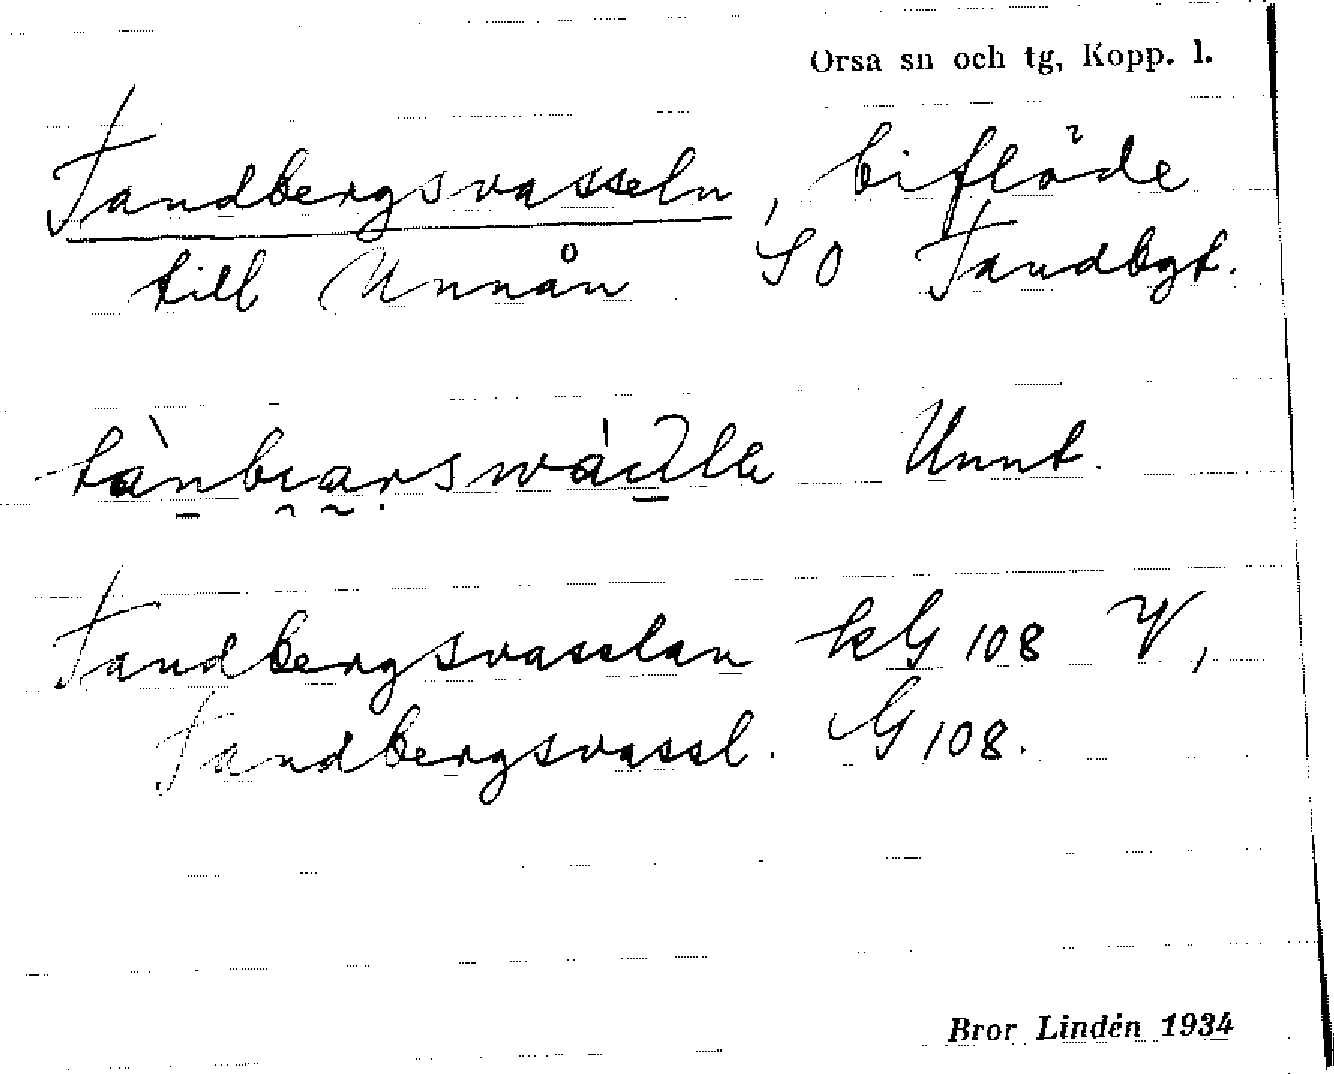 Orsa sn och tg, Kopp. l.
Tandbergsvasseln, biflöde
till Unnån SO Tandbgt.
Unnt.
Tandbergsvasslan kG 108 V,
Tandbergsvassl. G 108.
Bror Lindén 1934